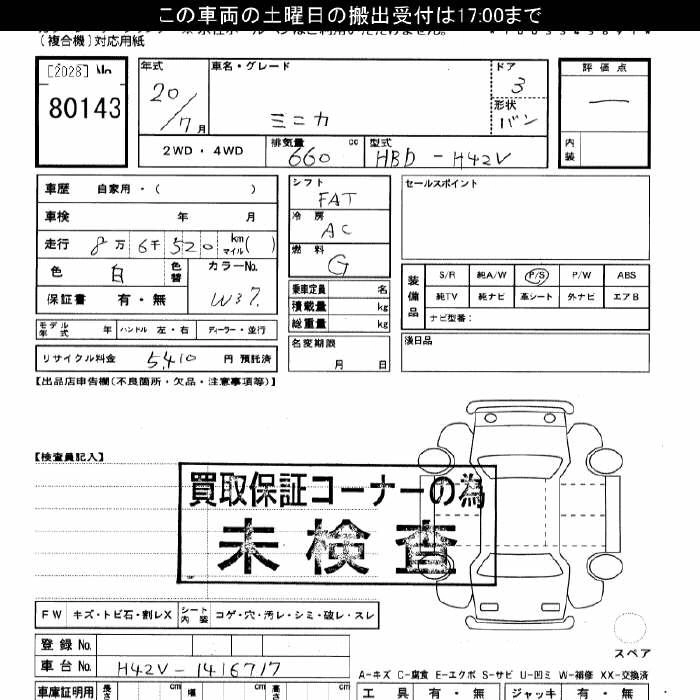 この車両の土曜日の搬出受付は17:00まで
(複合機)対応用紙
[2028] No
80143
年式 20/7月
車名・グレード
ミニカ
ドア 3
形状 バン
評価点
―
内装
2WD・4WD
排気量 660 cc
型式 HBD-H42V
車歴 自家用・( )
車検 年 月
走行 8万6千520 km マイル( )
色 白 色替
カラーNo. W37
保証書 有・無
シフト FAT
冷房 AC
燃料 G
乗車定員 名
積載量 kg
総重量 kg
名変期限 月 日
セールスポイント
装備品
S/R 純A/W P/S P/W ABS
純TV 純ナビ 革シート 外ナビ エアB
ナビ型番:
モデル年式 年 ハンドル 左・右 ディーラー・並行
リサイクル料金 5,410 円 預託済
【出品店申告欄(不良箇所・欠品・注意事項等)】
【検査員記入】
買取保証コーナーの為
未検査
FW キズ・トビ石・割レX シート内装 コゲ・穴・汚レ・シミ・破レ・スレ
登録No.
車台No. H42V-1416717
車庫証明用 長さ cm 幅 cm 高さ cm
スペア
A-キズ C-腐食 E-エクボ S-サビ U-凹ミ W-補修 XX-交換済
工具 有・無 ジャッキ 有・無